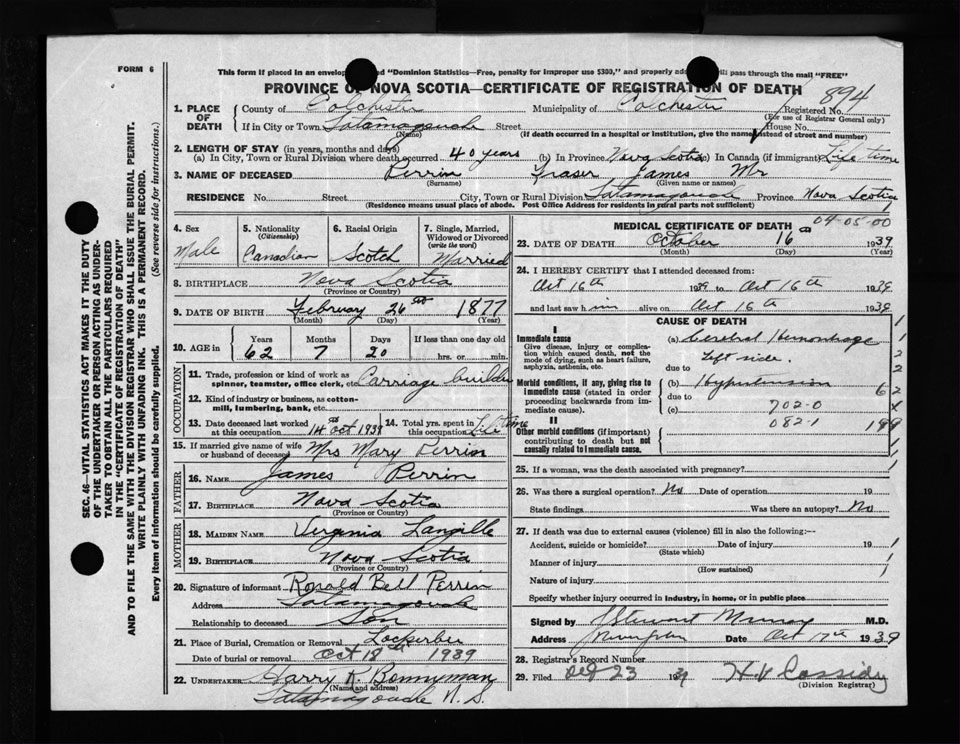 FORM 6
This form if placed in an envelop "Dominion Statistics—Free, penalty for improper use $300," and properly add ll pass through the mail "FREE"
PROVINCE OF NOVA SCOTIA—CERTIFICATE OF REGISTRATION OF DEATH
894
1. PLACE OF DEATH County of Colchester Municipality of Colchester Registered No.
(For use of Registrar General only)
If in City or Town Tatamagouche Street House No.
(Name) (If death occurred in a hospital or institution, give the name instead of street and number)
2. LENGTH OF STAY (in years, months and days)
(a) In City, Town or Rural Division where death occurred 40 years (b) In Province Nova Scotia (c) In Canada (if immigrant) Life time
3. NAME OF DECEASED Perrin Fraser James Mr
(Surname) (Given name or names)
RESIDENCE No. Street City, Town or Rural Division Tatamagouche Province Nova Scotia
(Residence means usual place of abode. Post Office Address for residents in rural parts not sufficient)
SEC. 46—VITAL STATISTICS ACT MAKES IT THE DUTY
OF THE UNDERTAKER OR PERSON ACTING AS UNDER-
TAKER TO OBTAIN ALL THE PARTICULARS REQUIRED
IN THE "CERTIFICATE OF REGISTRATION OF DEATH"
AND TO FILE THE SAME WITH THE DIVISION REGISTRAR WHO SHALL ISSUE THE BURIAL PERMIT.
WRITE PLAINLY WITH UNFADING INK. THIS IS A PERMANENT RECORD.
Every item of information should be carefully supplied. (See reverse side for instructions.)
4. Sex 5. Nationality (Citizenship) 6. Racial Origin 7. Single, Married, Widowed or Divorced (write the word)
Male Canadian Scotch Married
8. BIRTHPLACE Nova Scotia
(Province or Country)
9. DATE OF BIRTH February 26th 1877
(Month) (Day) (Year)
10. AGE in Years Months Days If less than one day old
62 7 20 hrs. or min.
OCCUPATION
11. Trade, profession or kind of work as spinner, teamster, office clerk, etc. Carriage builder
12. Kind of industry or business, as cotton-mill, lumbering, bank, etc.
13. Date deceased last worked at this occupation 14th Oct 1939 14. Total yrs. spent in this occupation Life time
15. If married give name of wife or husband of deceased Mrs Mary Perrin
FATHER
16. NAME James Perrin
17. BIRTHPLACE Nova Scotia
(Province or Country)
MOTHER
18. MAIDEN NAME Virginia Langille
19. BIRTHPLACE Nova Scotia
(Province or Country)
20. Signature of informant Ronald Bell Perrin
Address Tatamagouche
Relationship to deceased Son
21. Place of Burial, Cremation or Removal Lockerbie
Date of burial or removal Oct 18th 1939
22. UNDERTAKER Harry K. Bonnyman
(Name and address)
Tatamagouche N. S.
MEDICAL CERTIFICATE OF DEATH 04-05-00
23. DATE OF DEATH October 16 1939
(Month) (Day) (Year)
24. I HEREBY CERTIFY that I attended deceased from:
Oct 16th 1939 to Oct 16th 1939
and last saw him alive on Oct 16th 1939
CAUSE OF DEATH
I
Immediate cause
Give disease, injury or complication which caused death, not the mode of dying, such as heart failure, asphyxia, asthenia, etc.
(a) Cerebral Hemorrhage
left side.
due to
Morbid conditions, if any, giving rise to immediate cause (stated in order proceeding backwards from immediate cause).
(b) Hypertension
due to
(c) 702-0
082-1
II
Other morbid conditions (if important) contributing to death but not causally related to immediate cause.
25. If a woman, was the death associated with pregnancy?
26. Was there a surgical operation? No Date of operation 19
State findings Was there an autopsy? No
27. If death was due to external causes (violence) fill in also the following:—
Accident, suicide or homicide? Date of injury 19
(State which)
Manner of injury
(How sustained)
Nature of injury
Specify whether injury occurred in industry, in home, or in public place
Signed by Stewart Murray M.D.
Address Date Oct 17th 1939
28. Registrar's Record Number
29. Filed Oct 23 1939 H V Cassidy
(Division Registrar)